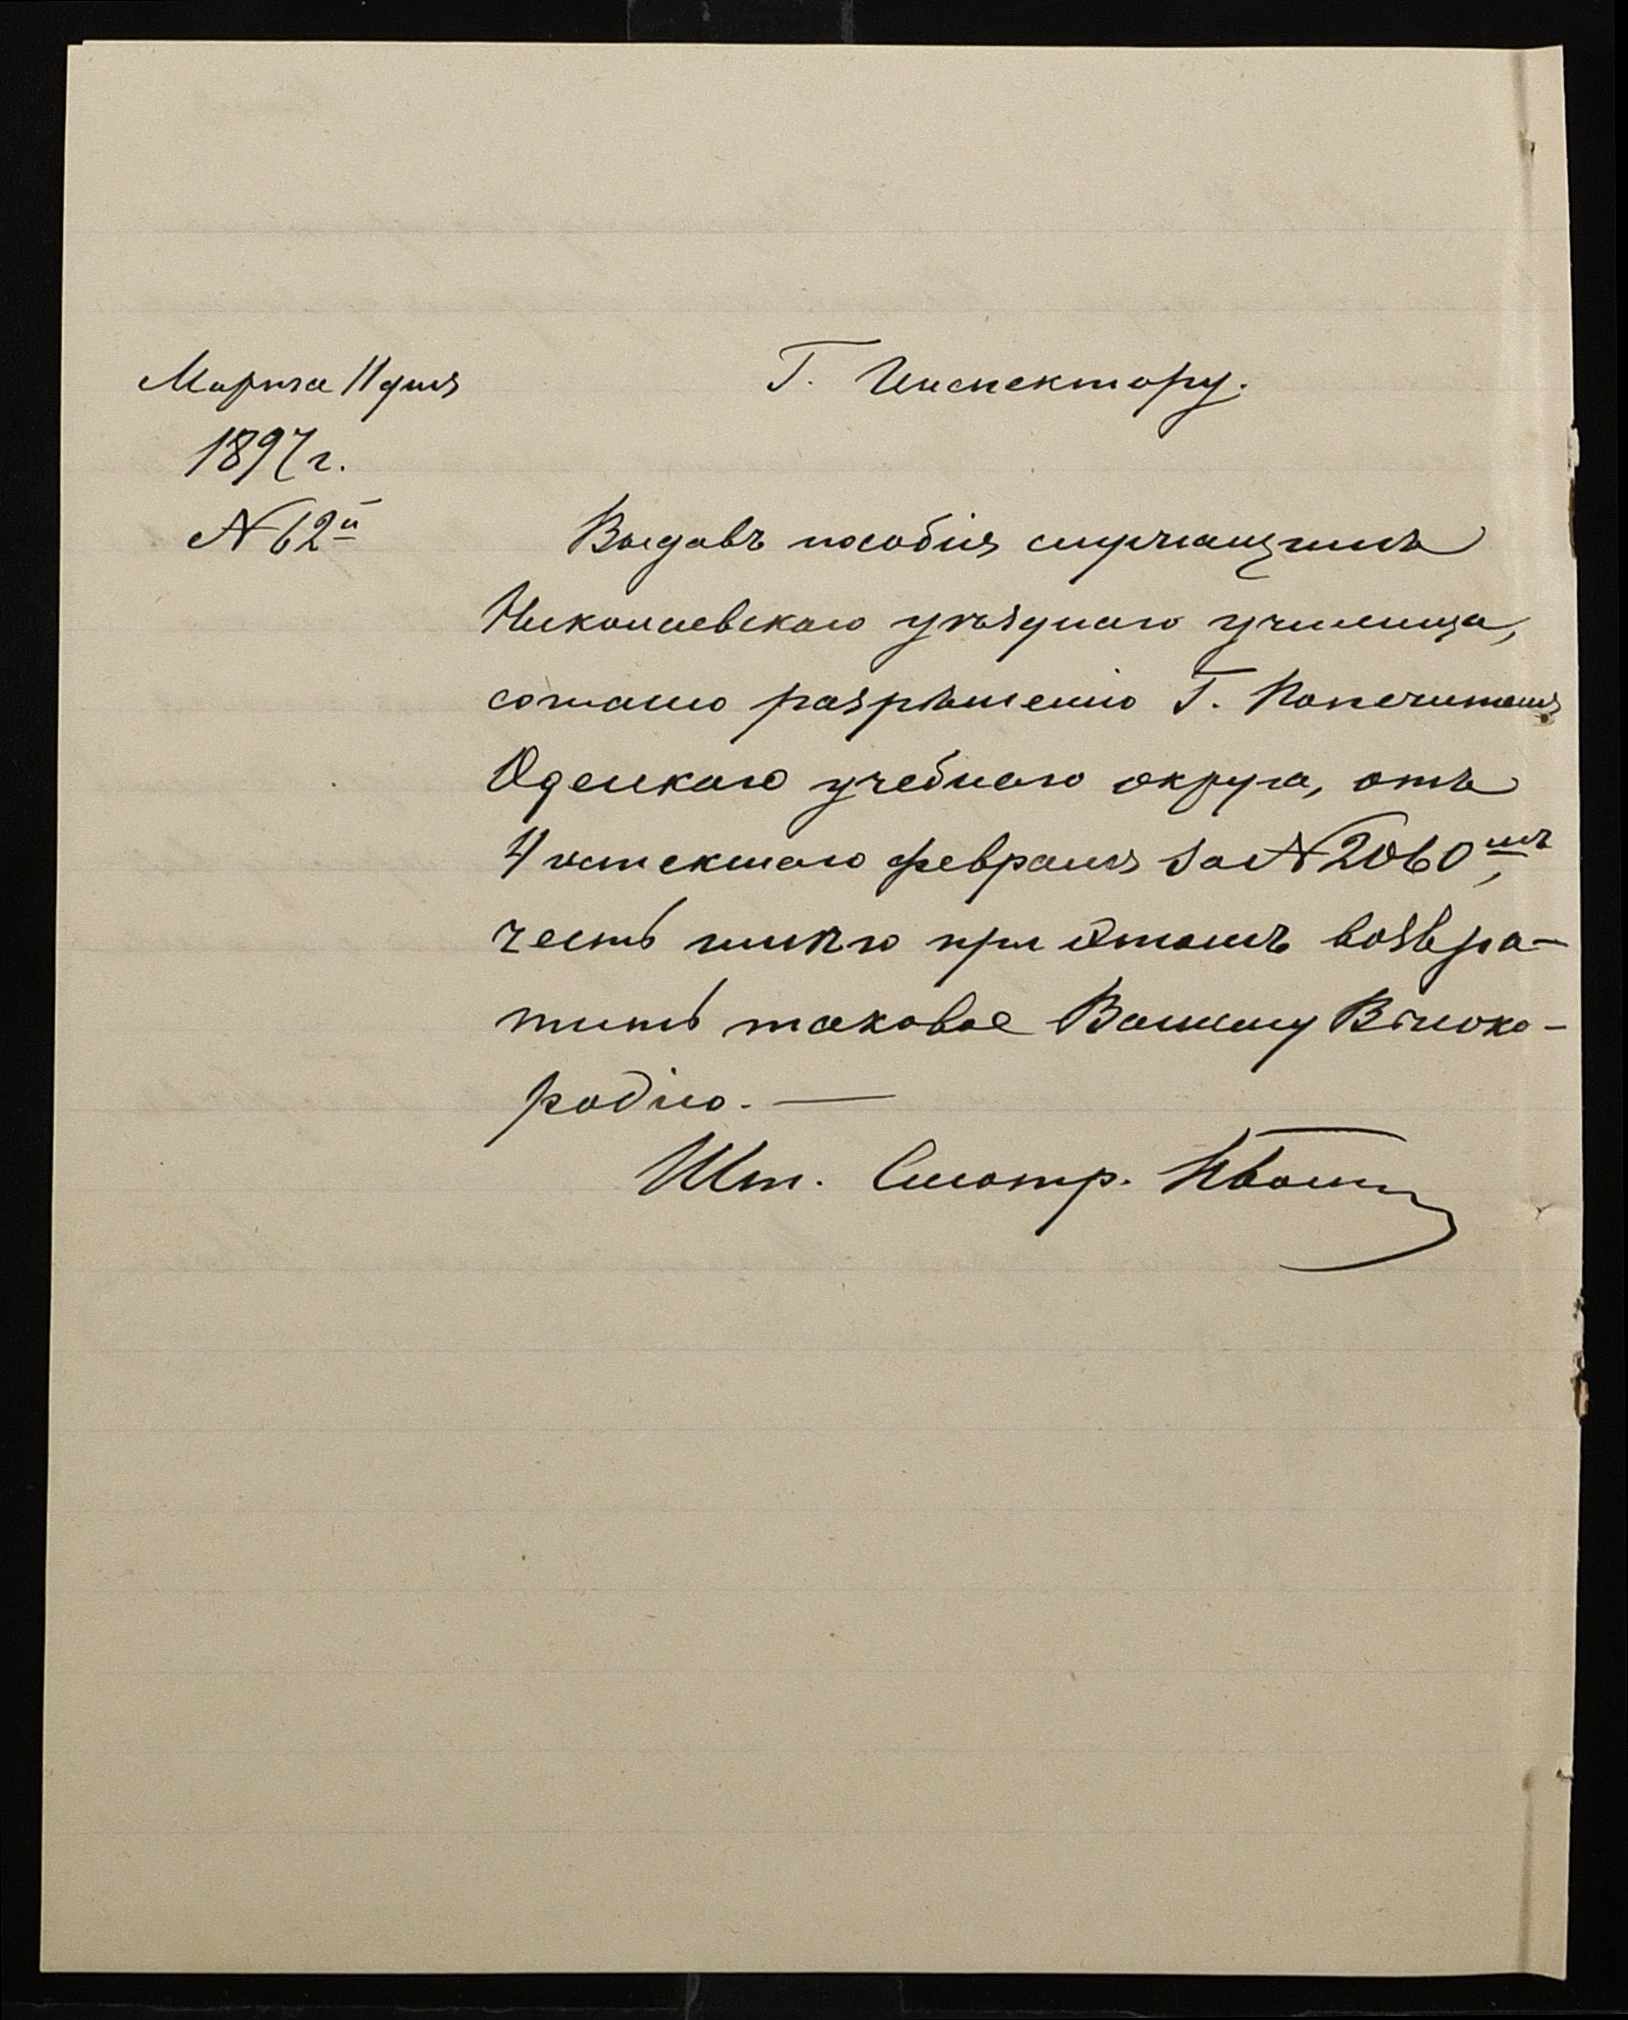 Марта 11 дня
1897 г.
№ 62й
Г. Инспектору.
Выдавъ пособія служащимъ
Николаевскаго уѣзднаго училища,
согласно разрѣшенію Г. Попечителя
Одесскаго учебнаго округа, отъ
4 истекшаго февраля за № 2060мъ,
честь имѣю при этомъ возвра-
тить таковое Вашему Высоко-
родію. —
Шт. Смотр.